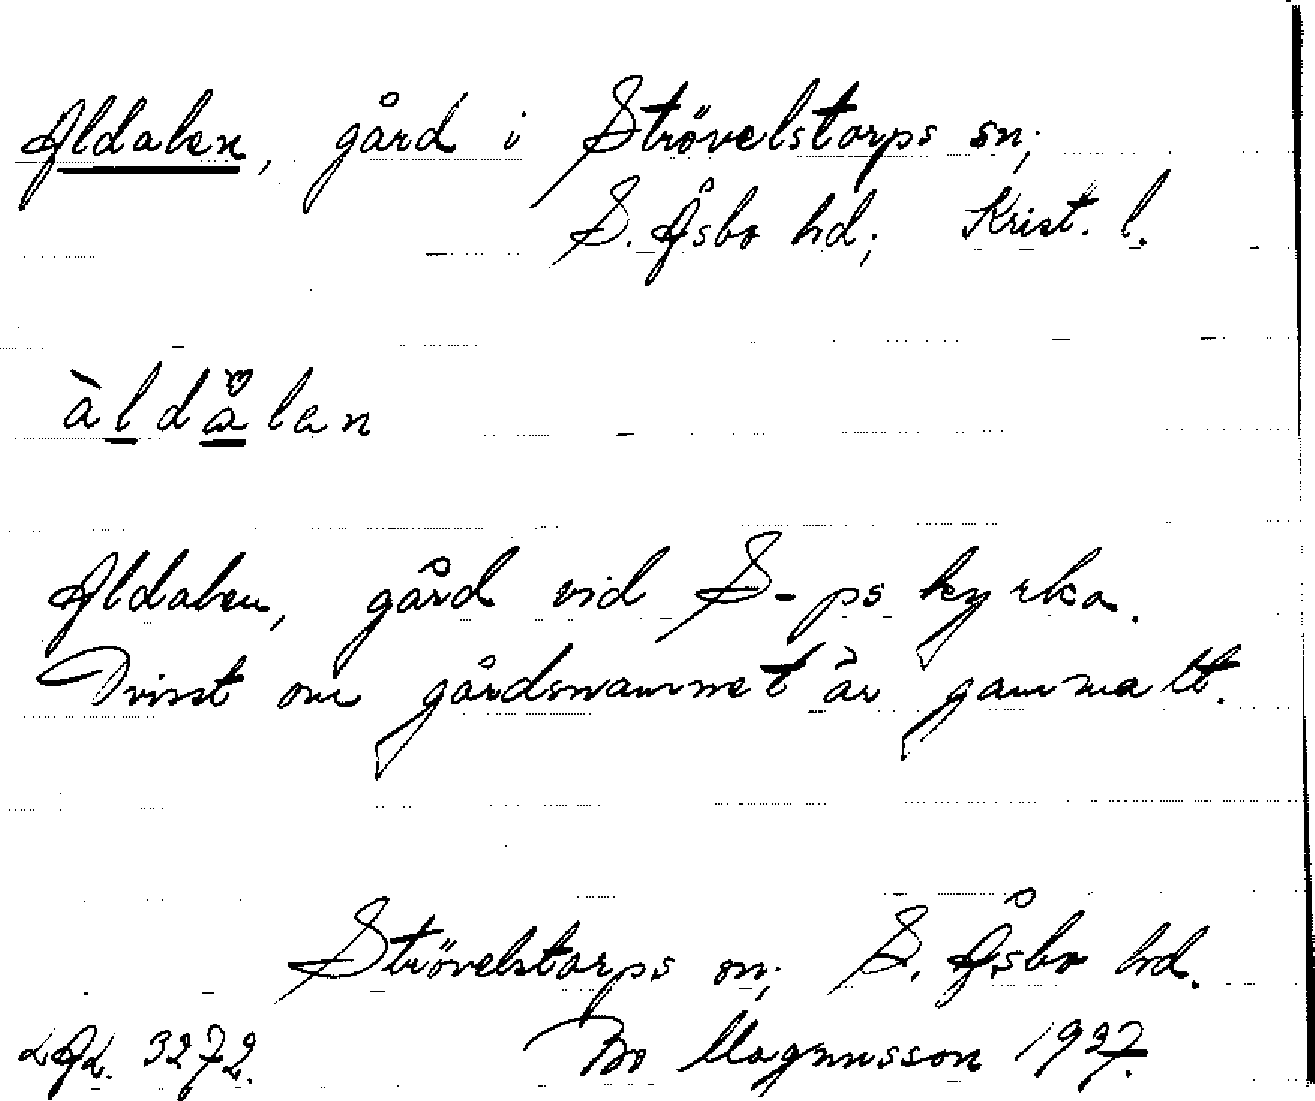 Aldalen, gård i Strövelstorps sn;
S. Åsbo hd; Krist. l.
àldå̊lan
Aldalen, gård vid S-ps kyrka.
Ovisst om gårdsnamnet är gammalt.
Strövelstorps sn; S. Åsbo hd.
LAL. 3272. Bo Magnusson 1927.